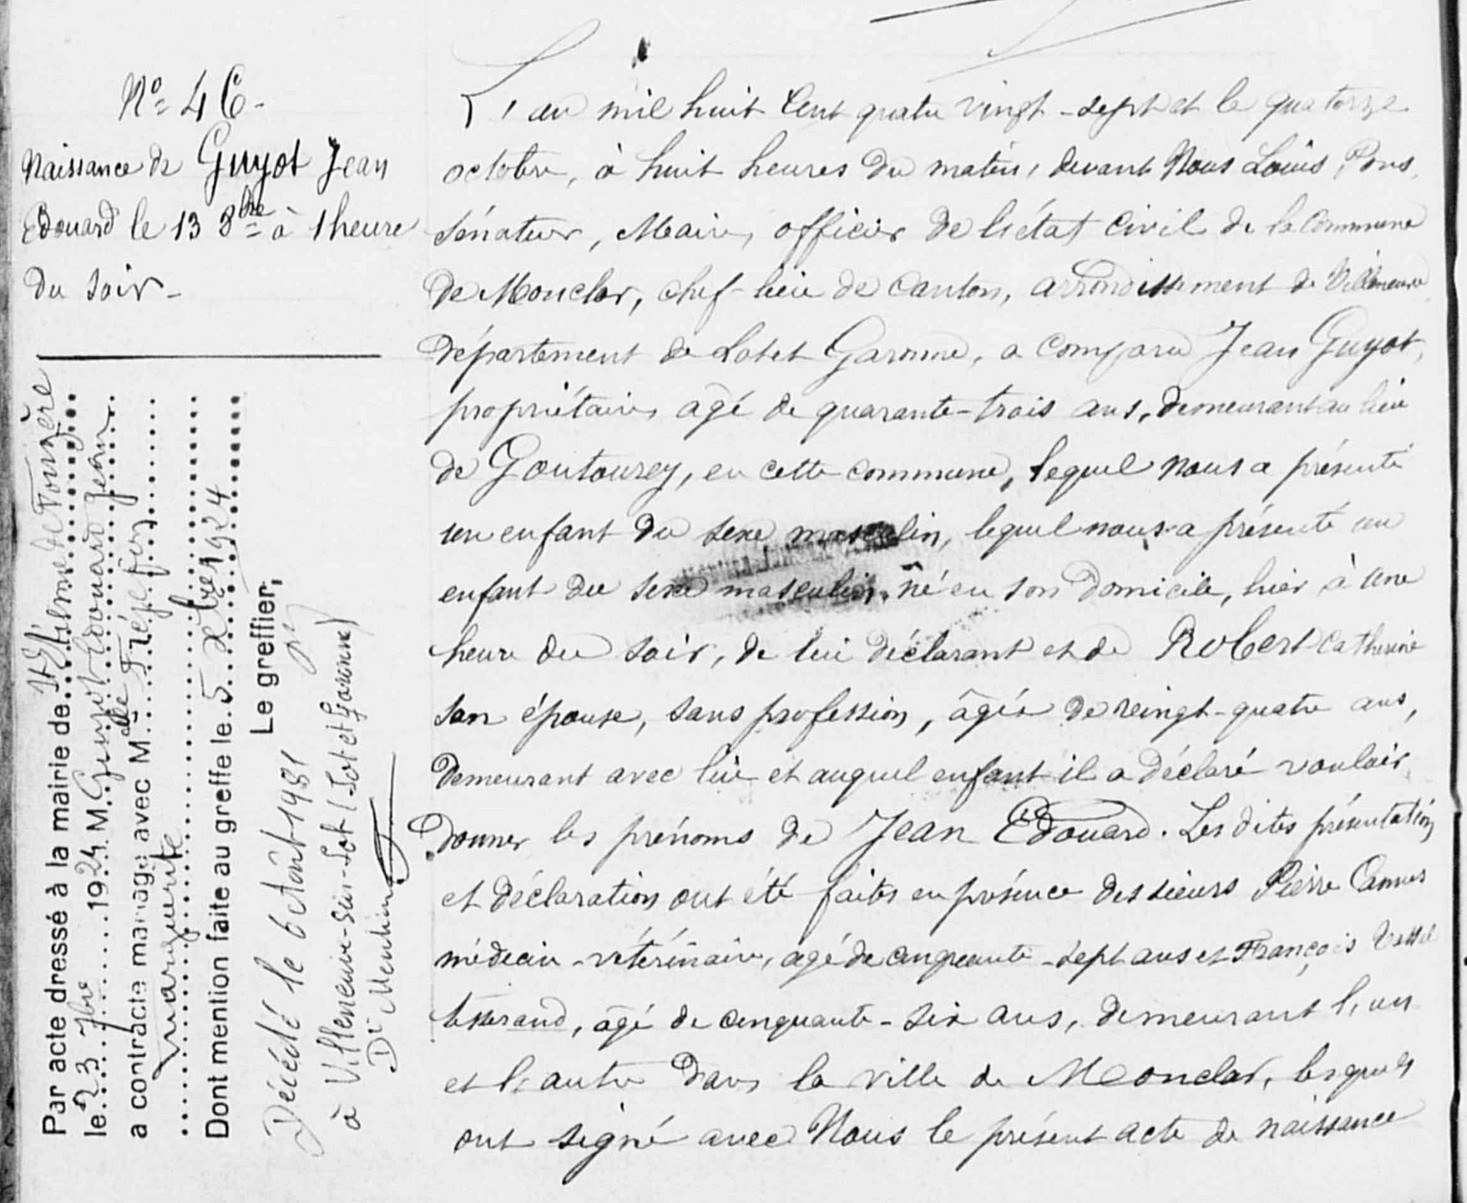 Nº 46-
Naissance de Guyot Jean
Edouard le 13 8bre à 1 heure
du soir-
L'an mil huit cent quatre vingt-sept et le quatorze
octobre, à huit heures du matin, devant Nous Louis Pons
sénateur, Maire, officier de l'état civil de la commune
de Monclar, chef-lieu de canton, arrondissement de Villeneuve
département de Lot et Garonne, a comparu Jean Guyot,
propriétaire, âgé de quarante-trois ans, demeurant au lieu
de Goutourey, en cette commune, lequel nous a présenté
un enfant du sexe masculin, lequel nous a présenté un
enfant du sexe masculin, né en son domicile, hier à une
heure du soir, de lui déclarant et de Robert Catherine
son épouse, sans profession, âgée de vingt-quatre ans,
demeurant avec lui et auquel enfant il a déclaré vouloir
donner les prénoms de Jean Edouard. Les dites présentation
et déclaration ont été faites en présence des sieurs Pierre Cames
médecin-vétérinaire, agé de cinquante-sept ans et François
tisserand, âgé de cinquante-six ans, demeurant l'un
et l'autre dans la ville de Monclar, lesquels
ont signé avec Nous le présent acte de naissance
Par acte dressé à la mairie de St Etienne de Fougère
le 23 7bre 1924 M. Guyot Edouard Jean
a contracté mariage avec M. elle
Marguerite
Dont mention faite au greffe le 5 Xbre 1924
Le greffier,
Décédé le 6 Août 1981
à Villeneuve-sur-Lot (Lot et Garonne)
Dt Mention